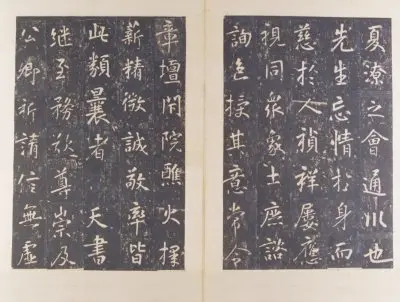 夏潦之會通川也
先生忘情於身而
慈於人禎祥屢應
視同衆象士庶諮
詢色授其意常令
章壇院醮火擇
薪精微誠敬率皆
此類曩者 天書
继至務欲尊崇及
公卿祈請信無虛